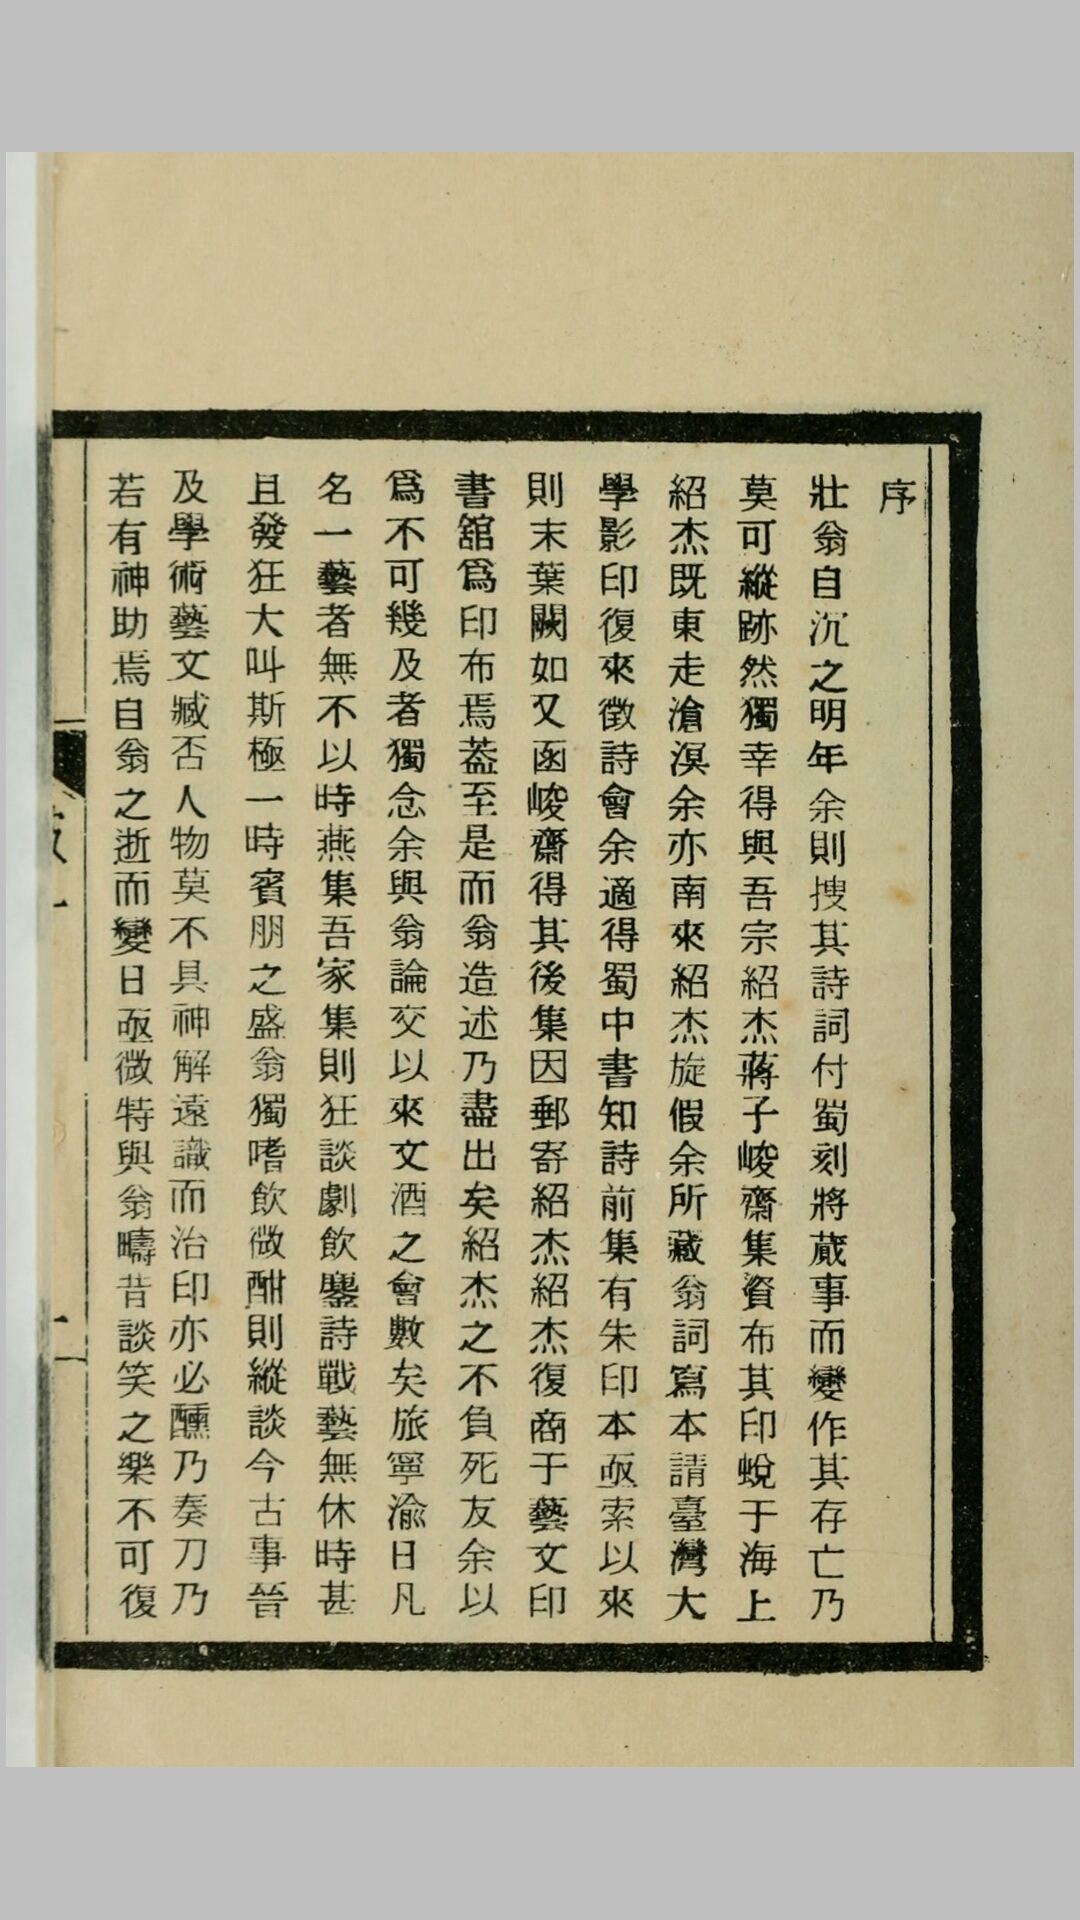 序
壯翁自沉之明年余則搜其詩詞付蜀刻將蕆事而變作其存亡乃
莫可縱跡然獨幸得與吾宗紹杰蔣子峻齋集資布其印蛻于海上
紹杰既東走滄溟余亦南來紹杰旋假余所藏翁詞寫本請臺灣大
學影印復來徵詩會余適得蜀中書知詩前集有朱印本亟索以來
則末葉闕如又函峻齋得其後集因郵寄紹杰紹杰復商于藝文印
書舘爲印布焉葢至是而翁造述乃盡出矣紹杰之不負死友余以
爲不可幾及者獨念余與翁論交以來文酒之會數矣旅寧渝日凡
名一藝者無不以時燕集吾家集則狂談劇飲鏖詩戰藝無休時甚
且發狂大叫斯極一時賓朋之盛翁獨嗜飲微酣則縱談今古事晉
及學術藝文臧否人物莫不具神解遠識而治印亦必醺乃奏刀乃
若有神助焉自翁之逝而變日亟微特與翁疇昔談笑之樂不可復